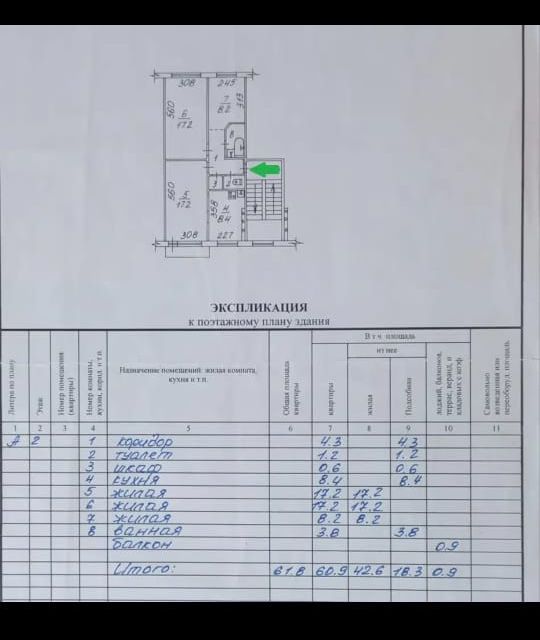 308 245
560 6 17.2
7 8.2 313
8
1
3 2
560 5 17.2
358 4 8.4
308 227
ЭКСПЛИКАЦИЯ
к поэтажному плану здания
Литера по плану
Этаж
Номер помещения (квартиры)
Номер комнаты, кухни, корид. и т.п.
Назначение помещений: жилая комната, кухня и т.п.
Общая площадь квартиры
В т ч площадь
квартиры
из нее
жилая
Подсобная
лоджий, балконов, террас, веранд, и кладовых с коэф
Самовольно возведенная или переоборуд. площадь
1 2 3 4 5 6 7 8 9 10 11
А 2 1 коридор 4.3 4.3
2 туалет 1.2 1.2
3 шкаф 0.6 0.6
4 кухня 8.4 8.4
5 жилая 17.2 17.2
6 жилая 17.2 17.2
7 жилая 8.2 8.2
8 ванная 3.8 3.8
балкон 0.9
Итого: 61.8 60.9 42.6 18.3 0.9